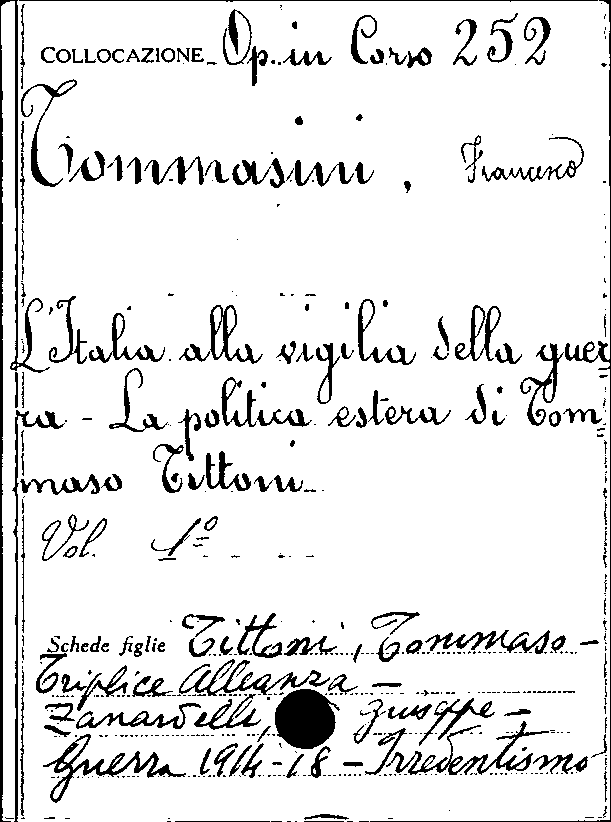 COLLOCAZIONE Op. in Corso 252
Tommasini, Francesco
L'Italia alla vigilia della guer=
ra - La politica estera di Tom=
maso Tittoni
Vol. 1º
Schede figlie Tittoni, Tommaso -
Triplice Alleanza -
Zanardelli, Giuseppe -
Guerra 1914-18 - Irredentismo